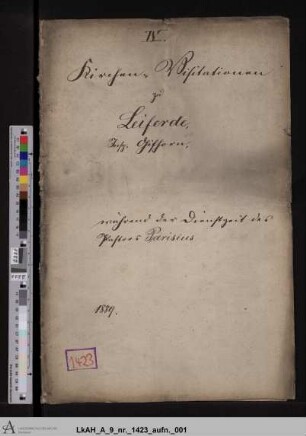 IV.
Kirchen-Visitationen
zu
Leiferde,
Insp. Gifhorn,
während der Dienstzeit des
Pastors Parisius
1423
LkAH_A_9_nr._1423_aufn._001